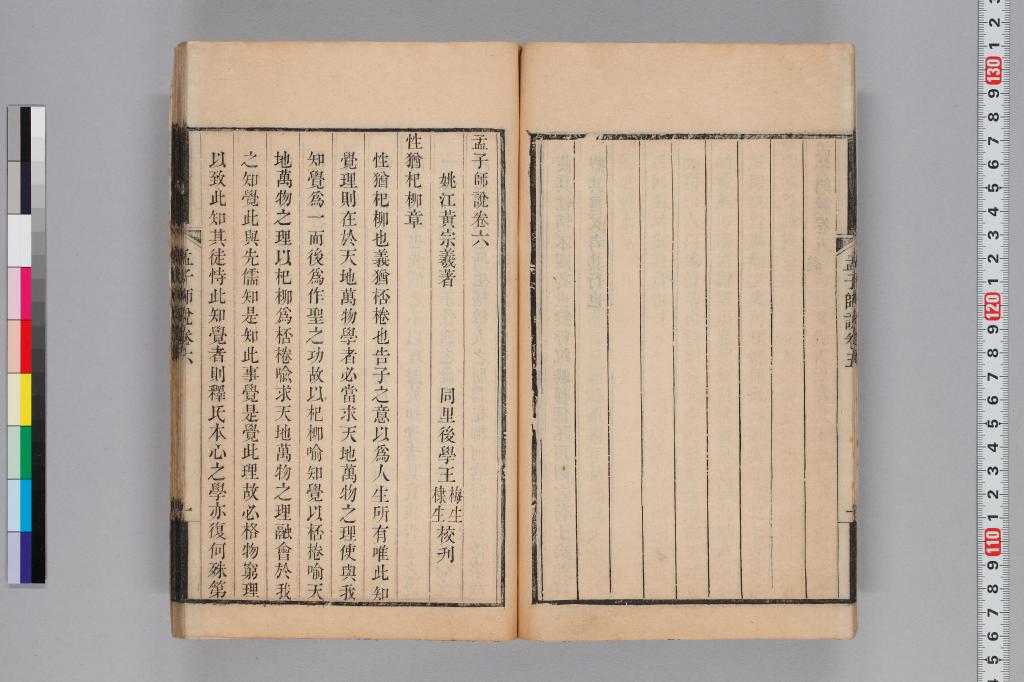 孟子師說卷五
孟子師說卷六
姚江黃宗羲著　同里後學王梅生棣生校刋
性猶杞柳章
性猶杞柳也義猶桮棬也告子之意以爲人生所有唯此知
覺理則在於天地萬物學者必當求天地萬物之理使與我
知覺爲一而後爲作聖之功故以杞柳喻知覺以桮棬喻天
地萬物之理以杞柳爲桮棬喩求天地萬物之理融會於我
之知覺此與先儒知是知此事覺是覺此理故必格物窮理
以致此知其徒恃此知覺者則釋氏本心之學亦復何殊第
孟子師說卷六
一